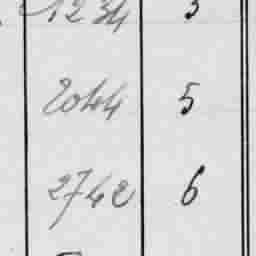 1234 3
2044 5
2742 6